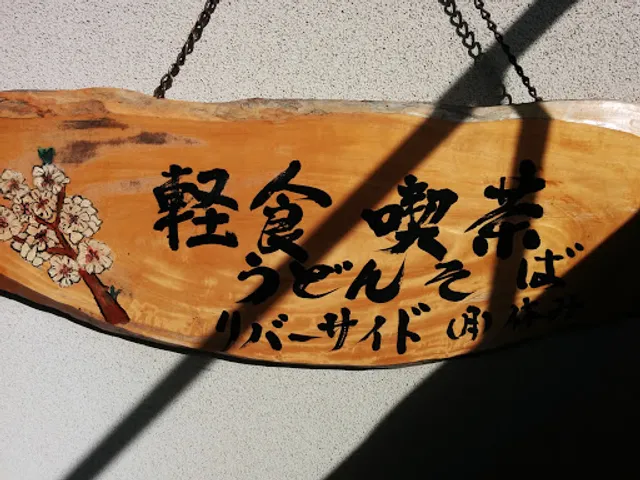 軽食 喫茶
うどん そば
リバーサイド (月) 休み